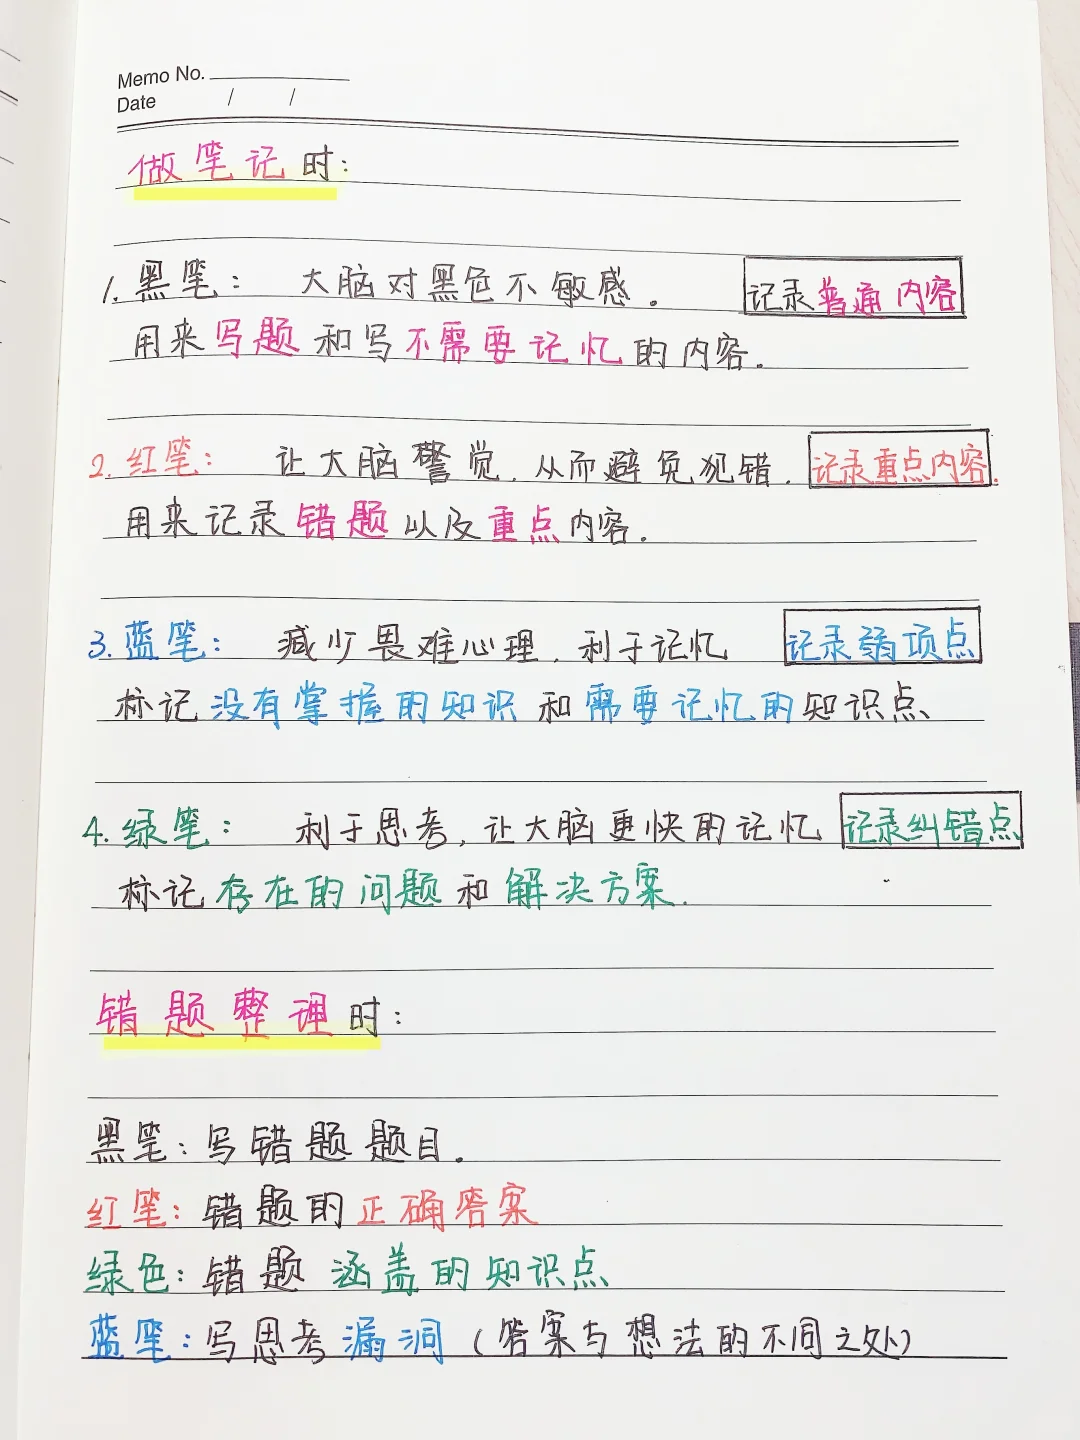 Memo No.
Date / /
做笔记时:
1. 黑笔: 大脑对黑色不敏感. 记录普通内容
用来写题和写不需要记忆的内容.
2. 红笔: 让大脑警觉, 从而避免犯错. 记录重点内容.
用来记录错题以及重点内容.
3. 蓝笔: 减少畏难心理, 利于记忆 记录弱项点
标记没有掌握的知识和需要记忆的知识点、
4. 绿笔: 利于思考, 让大脑更快的记忆 记录纠错点
标记存在的问题和解决方案.
错题整理时:
黑笔: 写错题题目.
红笔: 错题的正确答案
绿色: 错题 涵盖的知识点
蓝笔: 写思考漏洞 (答案与想法的不同之处)